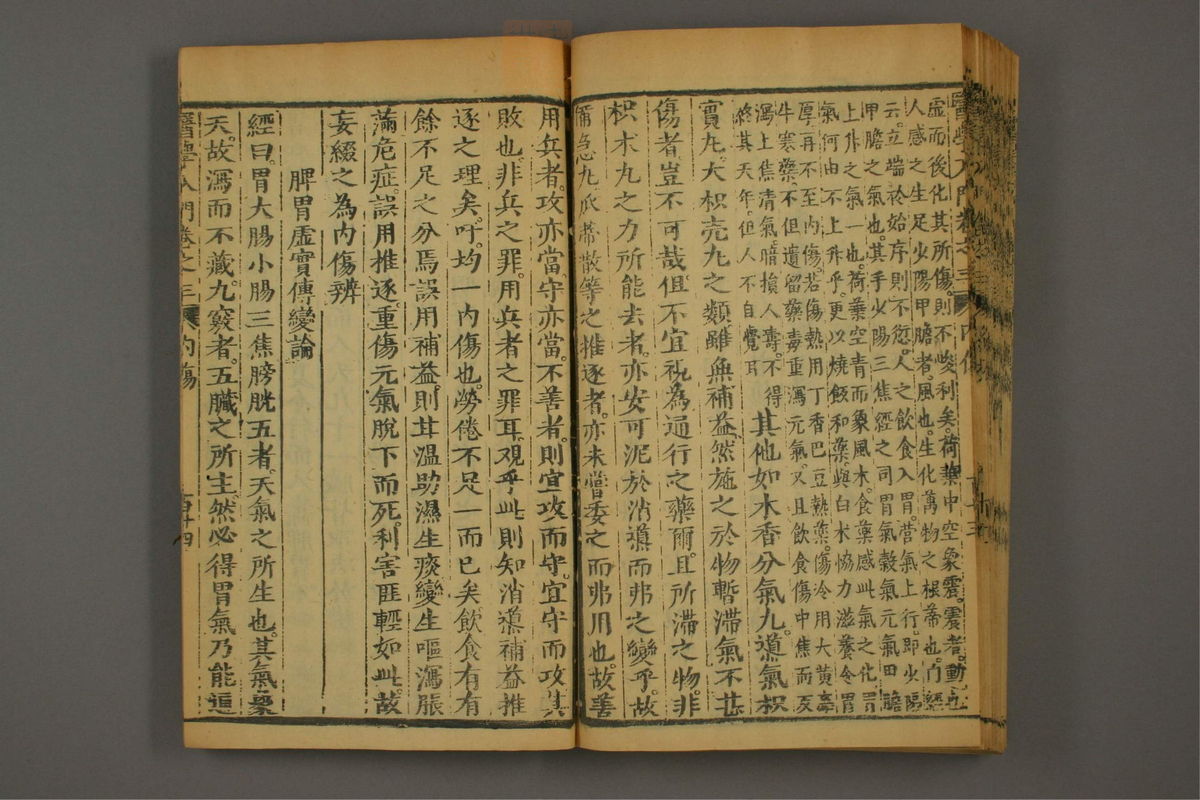 醫學入門卷之三 內傷
虛而後化其所傷則不峻利矣荷葉中空象震震者動也
人感之生足少陽甲膽者風也生化萬物之根蒂也內經
云立端於始序則不愆人之飲食入胃營氣上行即少陽
甲膽之氣也其手少陽三焦經之司胃氣穀氣元氣田膽
上升之氣一也荷葉空青而象風木食藥感此氣之化胃
氣何由不上升乎更以燒飯和藥與白朮恊力滋養令胃
厚再不至內傷若傷熱用丁香巴豆熱藥傷冷用大黃牽
牛寒藥不但遺留藥毒重瀉元氣又且飲食傷中焦而反
瀉上焦清氣暗損人壽不得
終其天年但人不自覺耳
其他如木香分氣丸導氣枳
實丸大枳壳丸之類雖無補益然施之於物暫滯氣不甚
傷者豈不可哉但不宜視為通行之藥爾且所滯之物非
枳朮丸之力所能去者亦安可泥於消導而弗之變乎故
備急丸瓜蒂散等之推逐者亦未嘗委之而弗用也故善
用兵者攻亦當守亦當不善者則宜攻而守宜守而攻其
敗也非兵之罪用兵者之罪耳觀乎此則知消導補益推
逐之理矣吁均一內傷也勞倦不足一而已矣飲食有有
餘不足之分焉誤用補益則甘溫助濕生痰變生嘔瀉脹
滿危症誤用推逐重傷元氣脫下而死利害匪輕如此故
妄綴之為內傷辨
脾胃虛實傳變論
經曰胃大腸小腸三焦膀胱五者天氣之所生也其氣象
天故瀉而不藏九竅者五臟之所主然必得胃氣乃能通
醫學入門卷之三 內傷 百十四